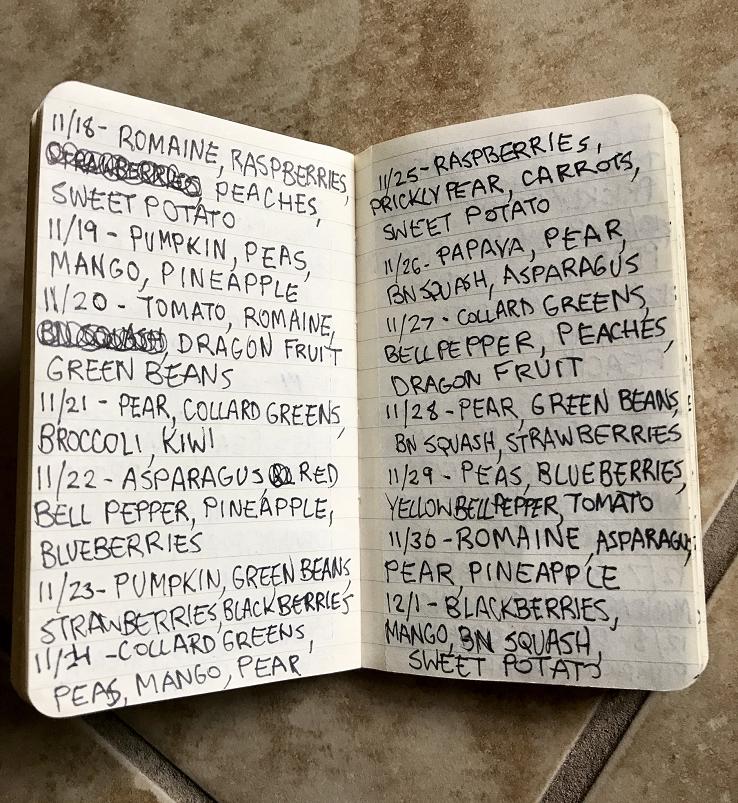 11/18- ROMAINE, RASPBERRIES,
STRAWBERRIES, PEACHES,
SWEET POTATO
11/19 - PUMPKIN, PEAS,
MANGO, PINEAPPLE
11/20 - TOMATO, ROMAINE,
BN SQUASH, DRAGON FRUIT
GREEN BEANS
11/21 - PEAR, COLLARD GREENS,
BROCCOLI, KIWI
11/22 - ASPARAGUS, RED
BELL PEPPER, PINEAPPLE,
BLUEBERRIES
11/23- PUMPKIN, GREEN BEANS,
STRAWBERRIES, BLACKBERRIES
11/24 - COLLARD GREENS,
PEAS, MANGO, PEAR
11/25- RASPBERRIES,
PRICKLY PEAR, CARROTS,
SWEET POTATO
11/26- PAPAYA, PEAR,
BN SQUASH, ASPARAGUS
11/27- COLLARD GREENS,
BELL PEPPER, PEACHES,
DRAGON FRUIT
11/28 - PEAR, GREEN BEANS,
BN SQUASH, STRAWBERRIES
11/29 - PEAS, BLUEBERRIES,
YELLOW BELL PEPPER, TOMATO
11/30 - ROMAINE, ASPARAGUS,
PEAR, PINEAPPLE
12/1 - BLACKBERRIES,
MANGO, BN SQUASH,
SWEET POTATO